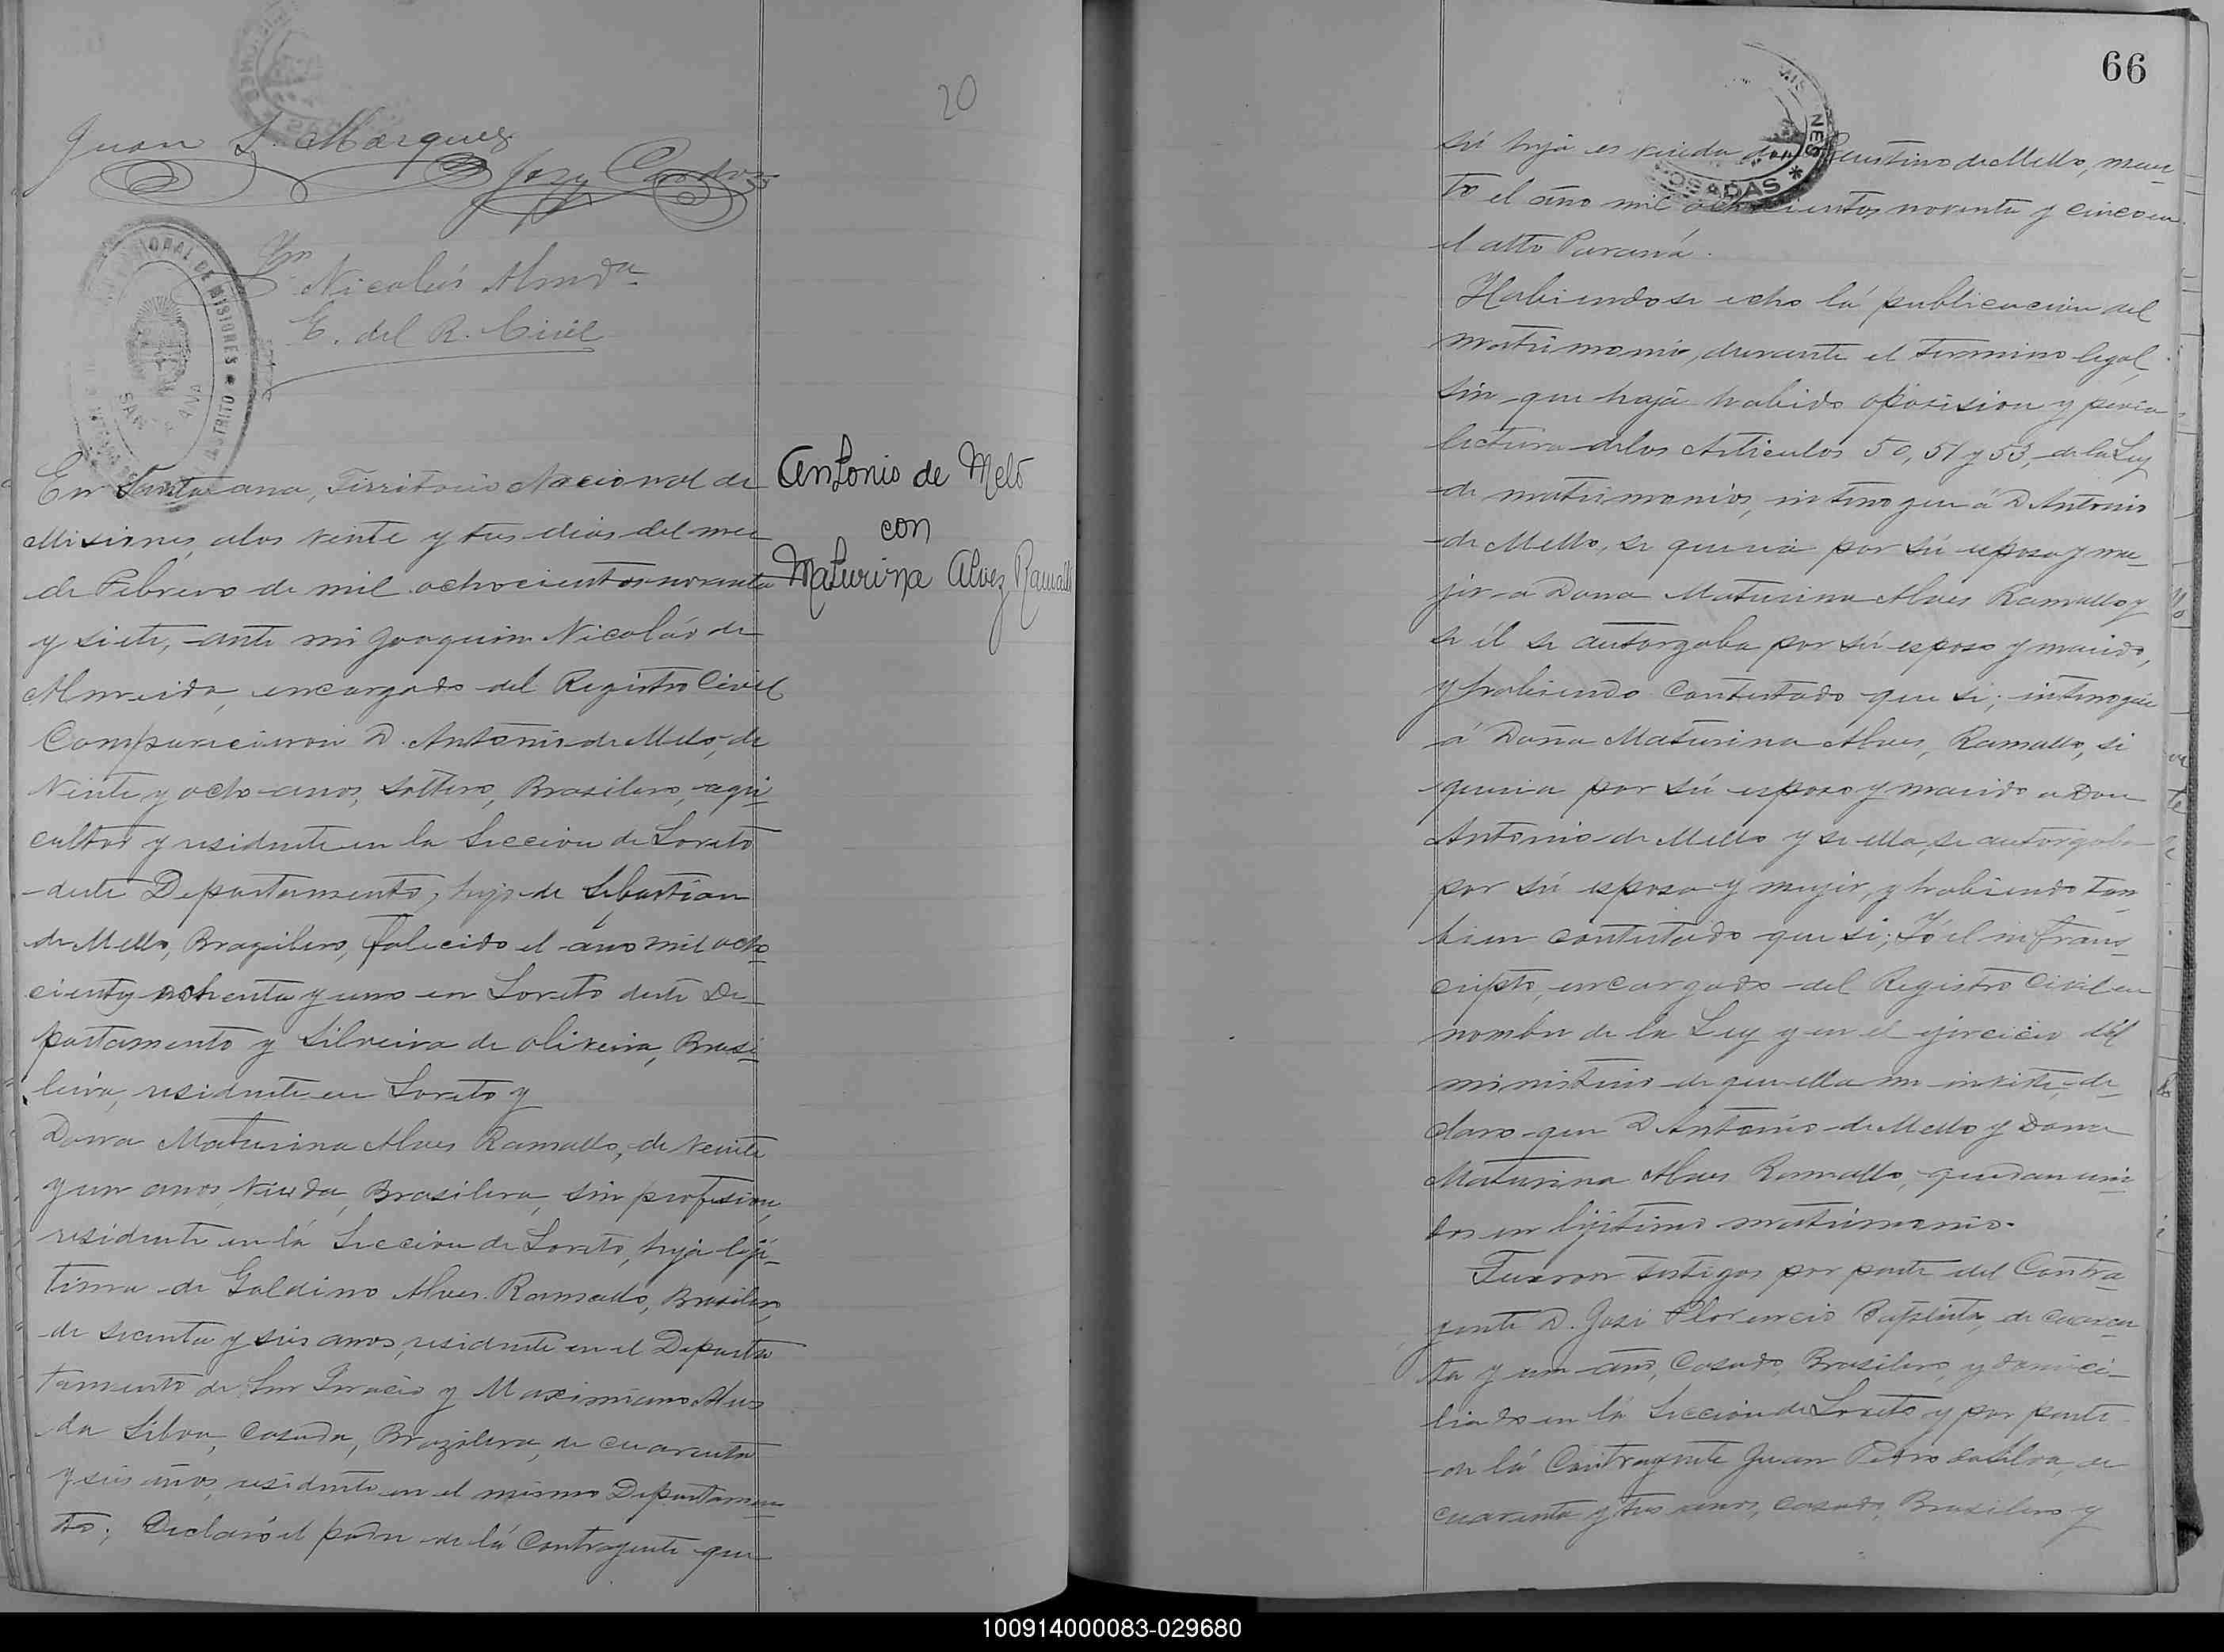 20
Juan S. Marquez
José Cardozo
Nicolás Almda
E. del R. Civil
En Santa ana, Territorio Nacional de
Misiones, alos veinte y tres dias del mes
de Febrero de mil ochocientos noventa
y siete, ante mi Joaquim Nicolás de
Almeida, encargado del Registro Civil
Comparecieron D. Antonio de Mello, de
veinte y ocho anos, soltero, Brasilero, agri
cultor y residente en la Seccion de Loreto
deste Departamento, hijo de Sebastian
de Mello, Brazilero, falecido el áno mil ocho
cientos ochenta y uno en Loreto deste De
partamento y Silveira de Oliveira, Brasi
leira, residente en Loreto y
Dona Maturina Alves Ramallo, de veinte
y un anos, viuda, Brasilera, sin profesion,
residente en lá Seccion de Loreto, hija liji
tima de Galdino Alves Ramallo, Brasilero,
de secenta y seis anos, residente en el Depar
tamento de San Ignacio y Maximiana Alves
da Silva, Casada, Brazilera, de cuarenta
y seis años, residente en el mismo Departamen
to; Declaró el padre de lá Contrayente que
Antonio de Melo
con
Maturina Alvez Ramallo
66
POSADAS *
sú hija es viuda don Faustino de Mello, muer
to el áno mil ochocientos noventa y cinco en
el alto Paraná.
Habiendose echo lá publicacion del
matrimonio, durante el termino legal,
sin que haja habido oposision y previa
lectura delos Articulos 50, 51 y 53, de la Ley
de matrimonios, interogue á D Antonio
de Mello, se queria por sú esposa y mu
jir a Dona Maturina Alves Ramallo y
se él se autorgaba por sú esposo y marido,
y habiendo Contestado que si; interogue
á Doña Maturina Alves, Ramallo, si
queria por sú esposo y marido a Don
Antonio de Mello y se ella, se autorgaba
por sú esposa y mujir, y habiendo tan
bien contestado que si; Yó el infrans
cripto, encargado del Registro Civil en
nombre de la Ley y en el ejercicio del
ministerio de que ella me inviste, de
claro que D Antonio de Mello y Dona
Maturina Alves Ramallo, quedan uni
dos en lijitimo matrimonio.
Fueron testigos por parte del Contra
yente D. José Florencio Baptista, de cuaren
ta y un áno, Casado, Brasilero, y domici
liado en lá Seccion de Loreto y por parte
de lá Contrayente Juan Pedro da Silva, de
cuarenta y tres anos, casado, Brasilero y
100914000083-029680